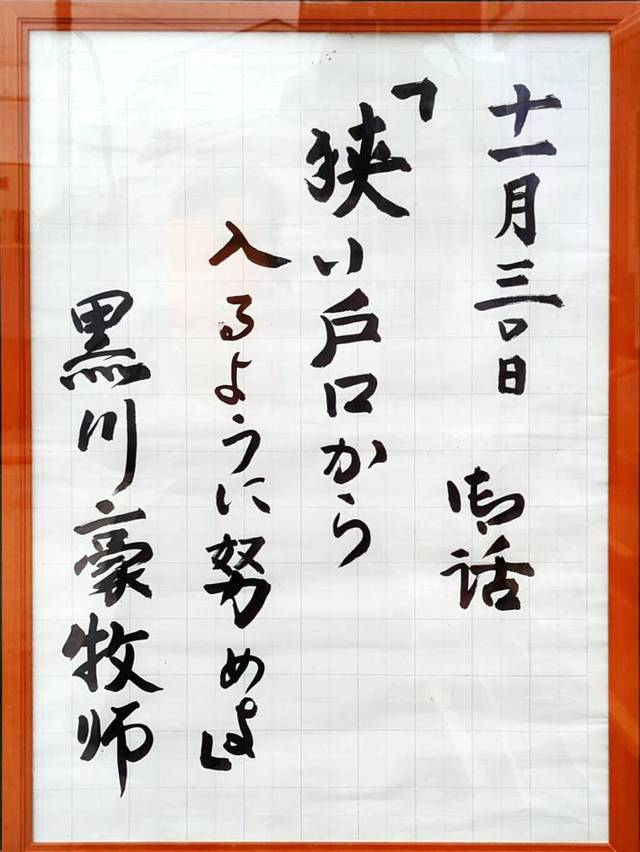 十一月三〇日 御話
「狭い戸口から
入るように努めよ」
黒川豪牧師